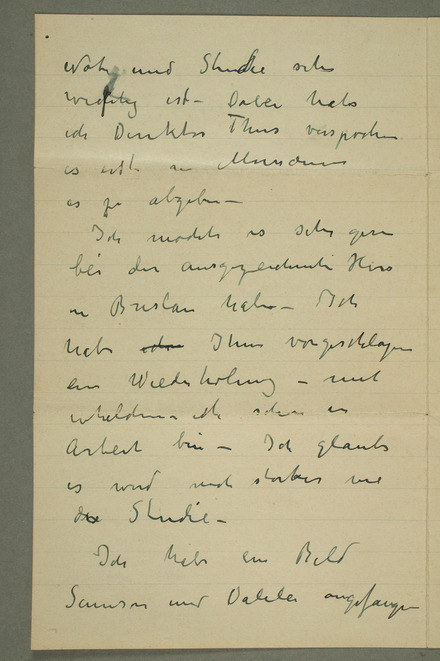 und Studie sehr
wichtig ist – Dabei habe
ich Direktor Thuis versprochen
es erst im Museum
es zu abgeben –
Ich möchte es sehr gern
bei der ausgezeichnete Herr
in Breslau haben – Ich
habe Ihm vorgeschlagen
ein Wiederholung – mit
welchem ich schon in
Arbeit bin – Ich glaube
es wird noch starker wie
die Studie –
Ich habe ein Bild
Samson und Dalila angefangen